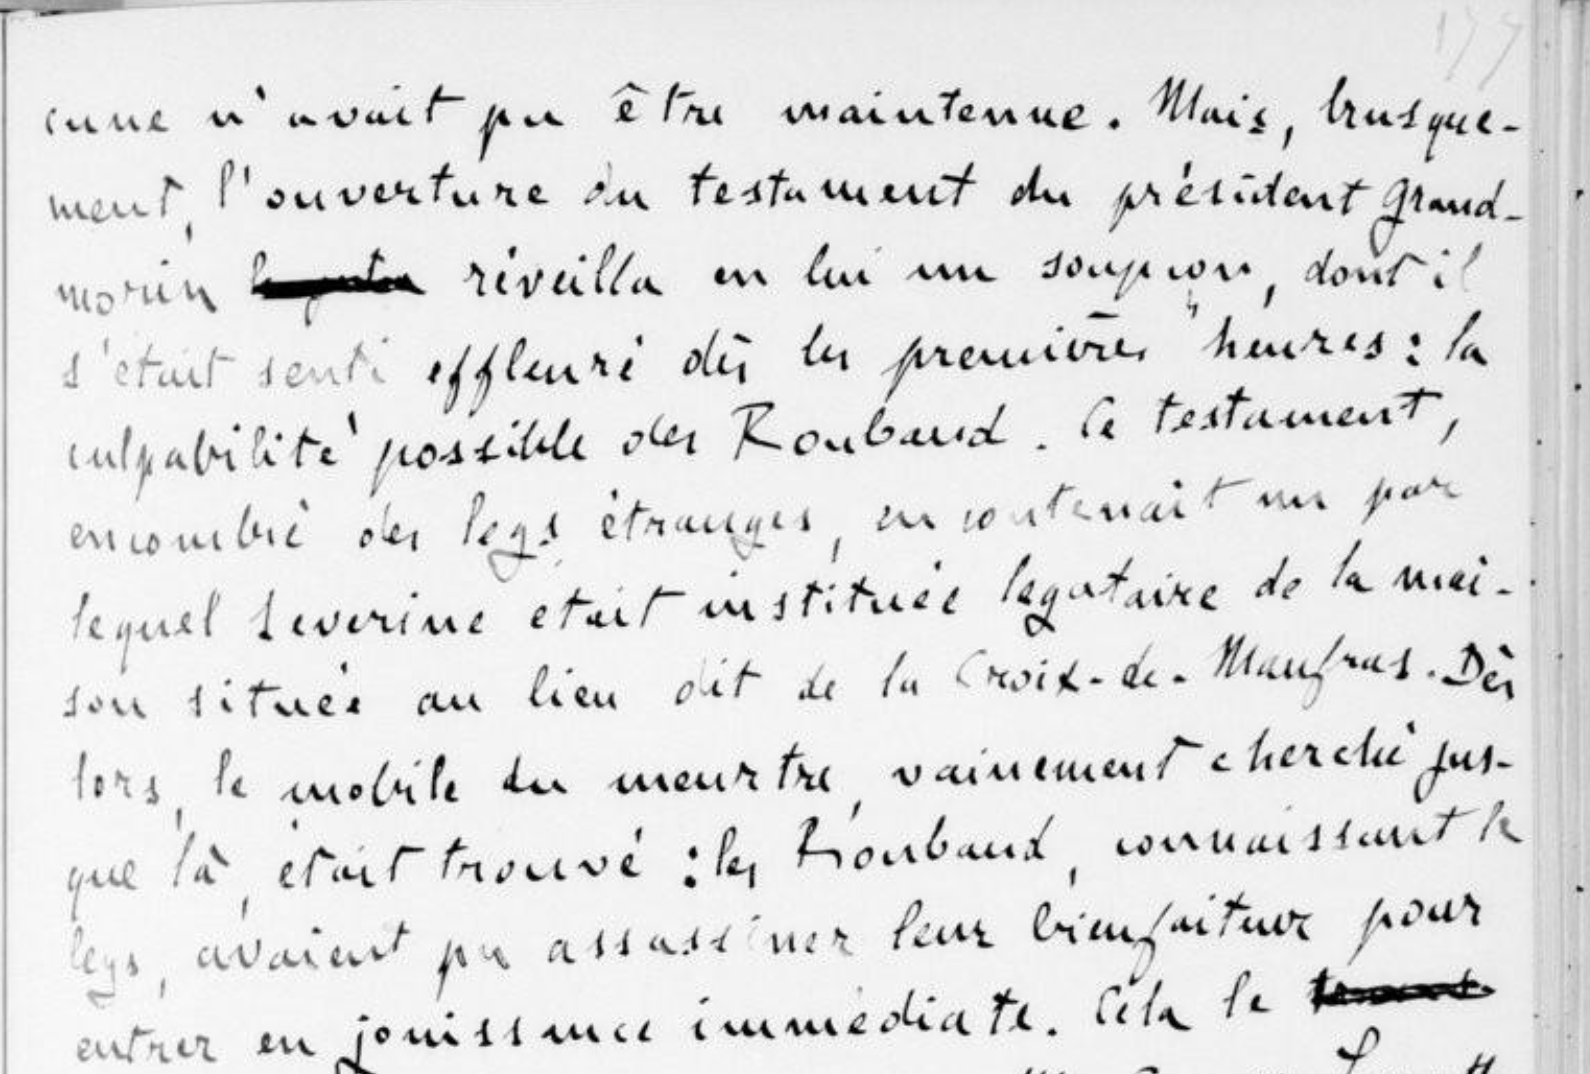 177
cune n'avait pu être maintenue. Mais, brusque-
ment, l'ouverture du testament du président Grand-
morin réveilla en lui un soupçon, dont il
s'était senti effleuré dès les premières heures : la
culpabilité possible des Roubaud. Ce testament,
encombré des legs étranges, en contenait un par
lequel Severine était instituée legataire de la mai-
son située au lieu dit de la Croix-de-Maufras. Dès
lors, le mobile du meurtre, vainement cherché jus-
que là, était trouvé : les Roubaud, connaissant le
legs, avaient pu assassiner leur bienfaiteur pour
entrer en jouissance immédiate. Cela le